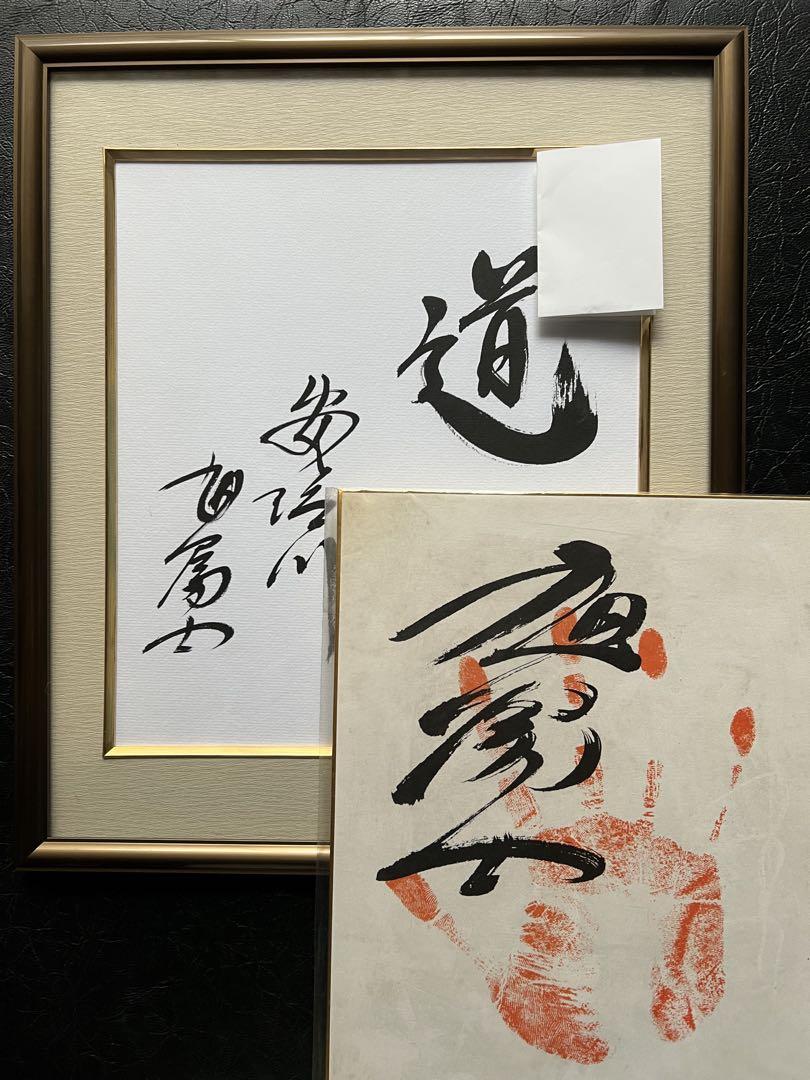 道
安治川
旭富士
旭富士